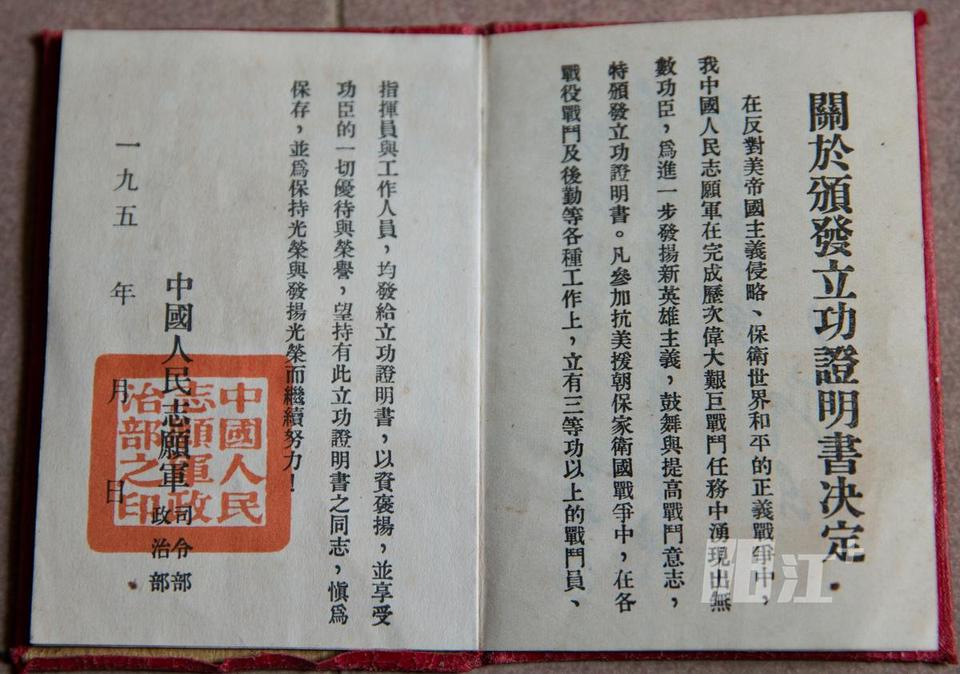 關於頒發立功證明書決定
在反對美帝國主義侵略、保衛世界和平的正義戰爭中，
我中國人民志願軍在完成歷次偉大艱巨戰鬥任務中湧現出無
數功臣，爲進一步發揚新英雄主義，鼓舞與提高戰鬥意志，
特頒發立功證明書。凡參加抗美援朝保家衛國戰爭中，在各
戰役戰鬥及後勤等各種工作上，立有三等功以上的戰鬥員、
指揮員與工作人員，均發給立功證明書，以資褒揚，並享受
功臣的一切優待與榮譽，望持有此立功證明書之同志，愼爲
保存，並爲保持光榮與發揚光榮而繼續努力！
中國人民志願軍
司令部
政治部
一九五 年 月 日
中國人民
志願軍政
治部之印
陽江